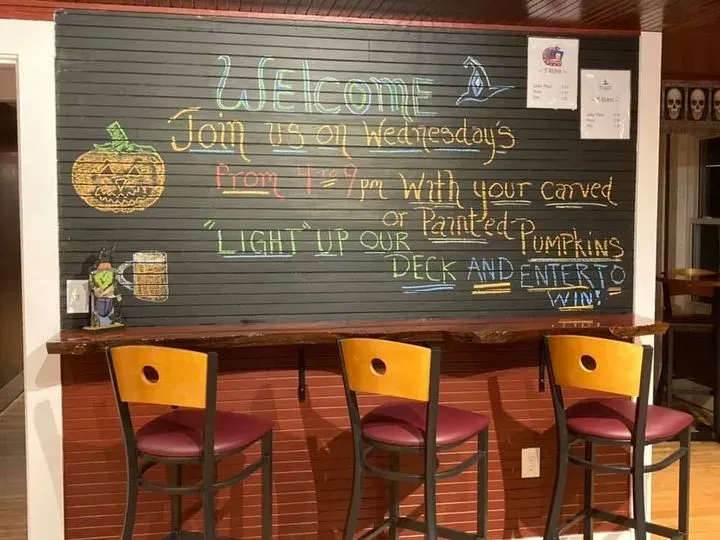 Welcome
Join us on Wednesday's
From 4 TO 9 pm With your carved
or Painted Pumpkins
"LIGHT" UP OUR
DECK AND ENTER TO
WIN!